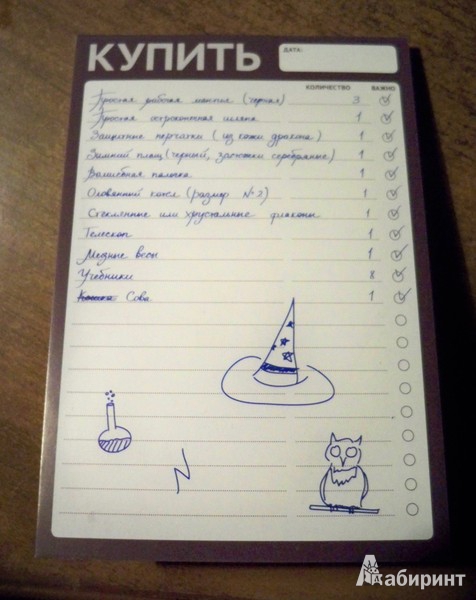 КУПИТЬ
ДАТА:
КОЛИЧЕСТВО ВАЖНО
Простая рабочая мантия (черная) 3
Простая остроконечная шляпа 1
Защитные перчатки (из кожи дракона) 1
Зимний плащ (черный, застежки серебряные) 1
Волшебная палочка 1
Оловянный котел (размер №2) 1
Стеклянные или хрустальные флаконы 1
Телескоп 1
Медные весы 1
Учебники 8
Кошка Сова 1
N
Лабиринт